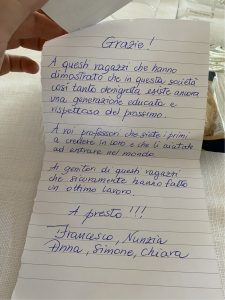 Grazie!
A questi ragazzi che hanno
dimostrato che in questa società
così tanto denigrata esiste ancora
una generazione educata e
rispettosa del prossimo.
A voi professori che siete i primi
a credere in loro e che li aiutate
ad entrare nel mondo.
Ai genitori di questi ragazzi
che sicuramente hanno fatto
un ottimo lavoro.
A presto!!!
Francesco, Nunzia
Anna, Simone, Chiara